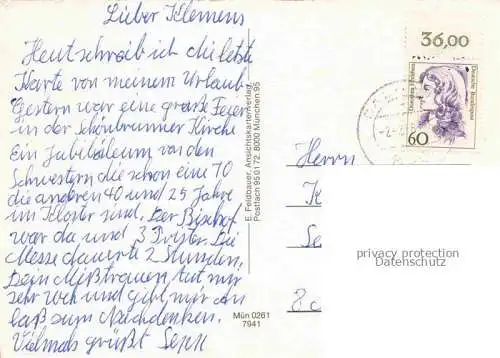 Lieber Klemens
Heut schreib ich die letzte
Karte von meinem Urlaub
Gestern war eine große Feier
in der Schönbrunner Kirche
Ein Jubiläum von den
Schwestern die schon eine 70
die anderen 40 und 25 Jahre
im Kloster sind. Der Bischof
war da und 3 Prister. Die
Messe dauerte 2 Stunden.
Dein Mißtrauen tut mir
sehr weh und gibt mir An
laß zum Nachdenken.
Vielmals grüßt Sepp
E. Feldbauer, Ansichtskartenverlag
Postfach 95 01 72, 8000 München 95
Mün 0261
7941
36,00
Deutsche Bundespost
60
Herrn
K
Se
8c
privacy protection
Datenschutz